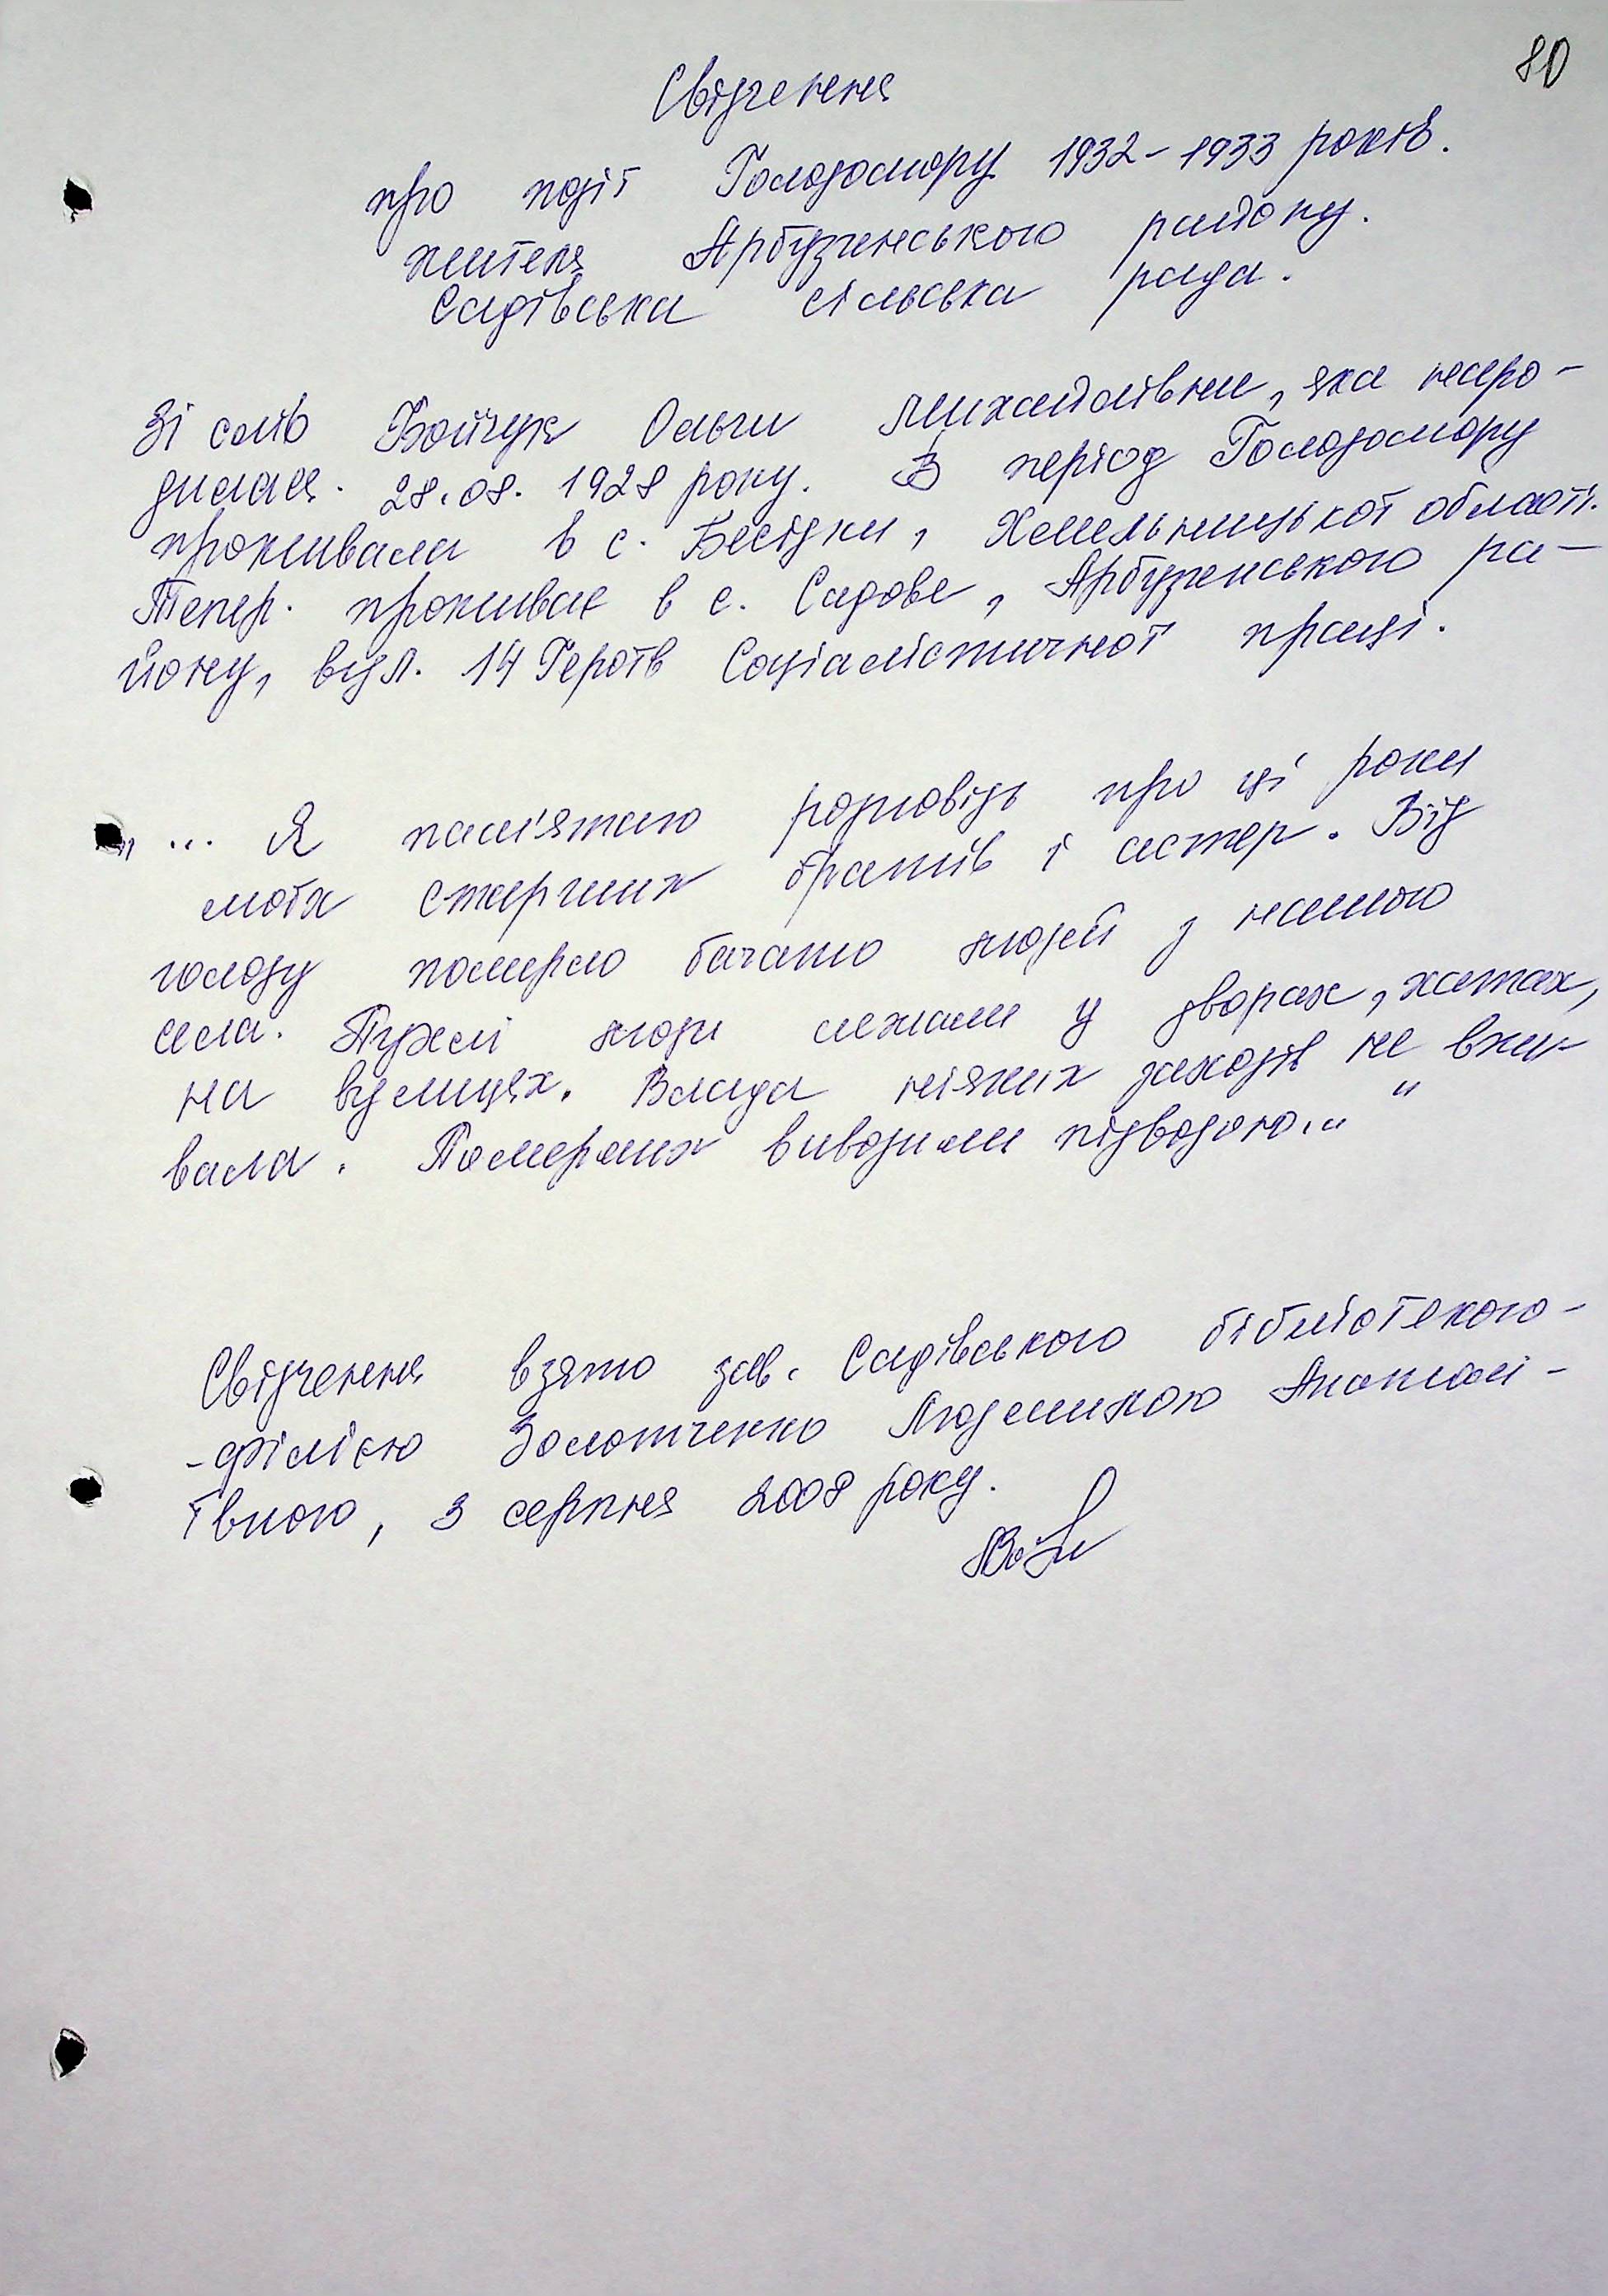 80
Свідчення
про події Голодомору 1932-1933 років.
жителя Арбузинського району.
Садівська сільська рада.
Зі слів Бойчук Ольги Михайлівни, яка наро-
дилася. 28.08.1928 року. В період Голодомору
проживала в с. Бесідки, Хмельницької області.
Тепер. проживає в с. Садове, Арбузинського ра-
йону, вул. 14 Героїв Соціалістичної праці.
„ ... Я пам'ятаю розповідь про ці роки
моїх старших братів і сестер. Від
голоду померло багато людей з нашого
села. Пухлі люди лежали у дворах, хатах,
на вулицях. Влада ніяких заходів не вжи-
вала. Померлих вивозили підводою..."
Свідчення взято зав. Садівського бібліотекою-
-філією Золотченко Людмилою Анатолі-
ївною, 3 серпня 2008 року.